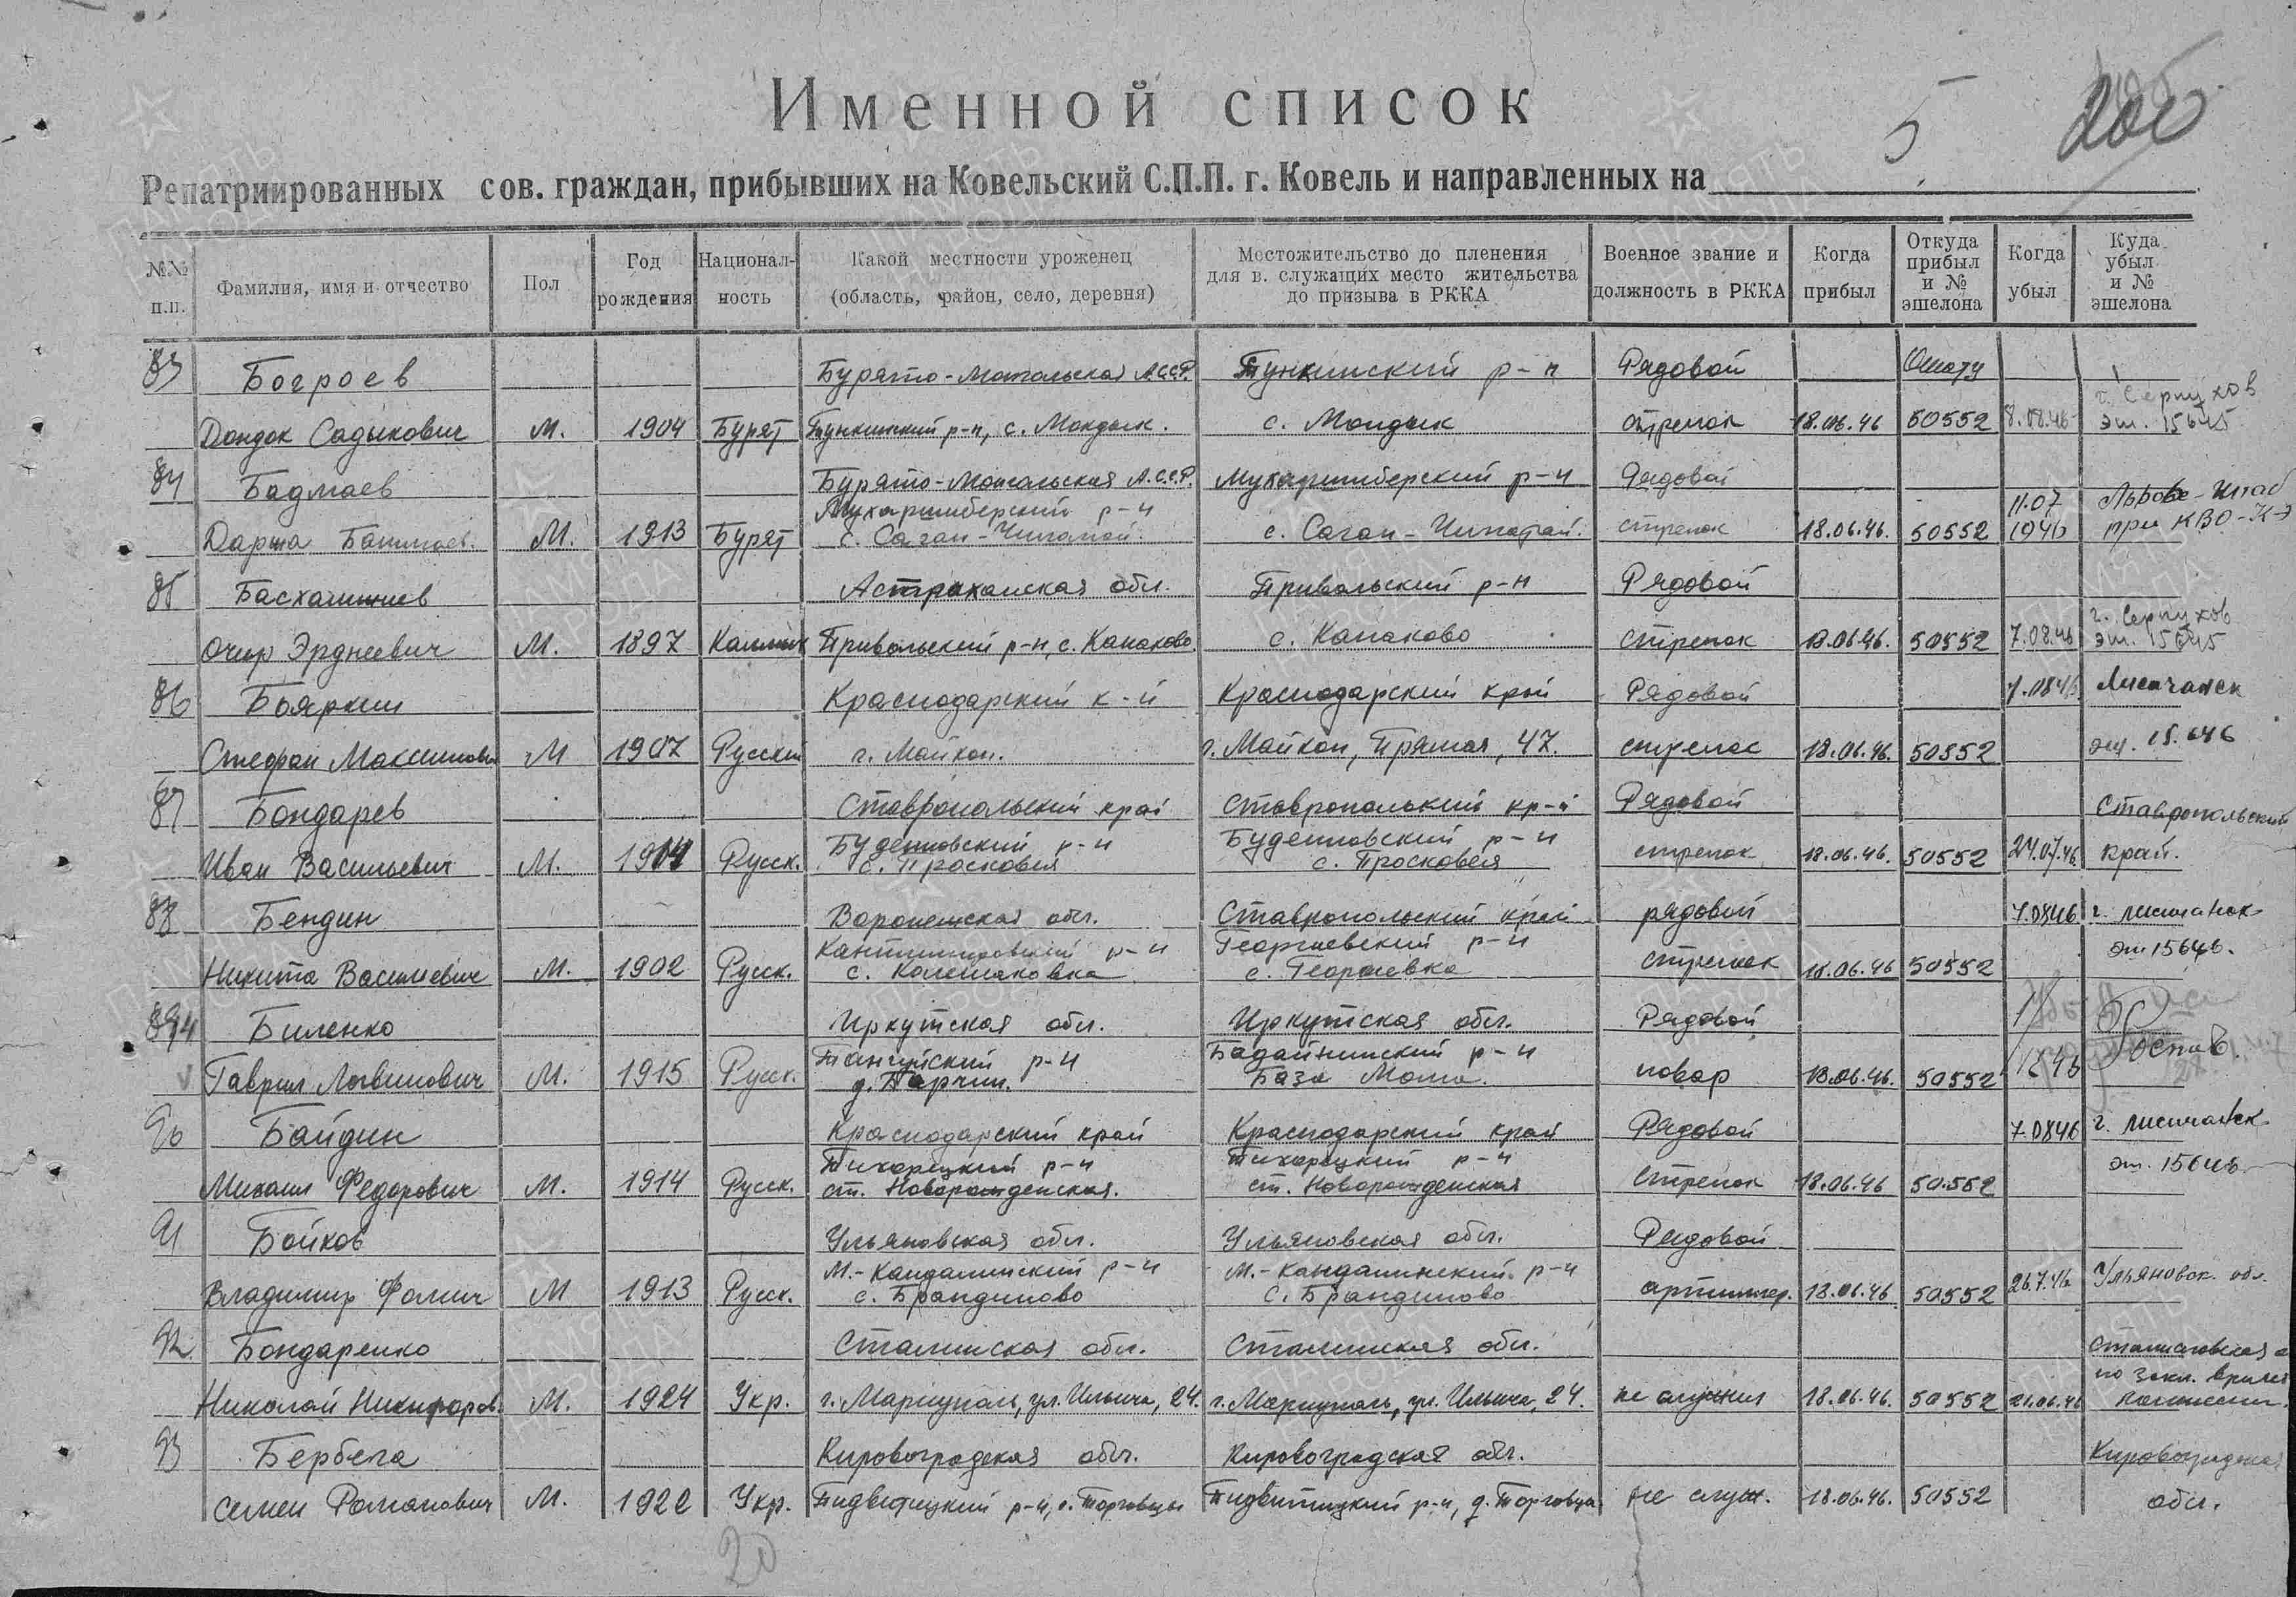 5
200
Именной список
Репатриированных сов. граждан, прибывших на Ковельский С.П.П. г. Ковель и направленных на
№№ п.п.
Фамилия, имя и отчество
Пол
Год рождения
Националь-ность
Какой местности уроженец (область, район, село, деревня)
Местожительство до пленения для в. служащих место жительства до призыва в РККА
Военное звание и должность в РККА
Когда прибыл
Откуда прибыл и № эшелона
Когда убыл
Куда убыл и № эшелона
83 Богроев Бурято-Монгольская А.С.С.Р. Тункинский р-н Рядовой
г. Серпухов
Дондок Садыкович М. 1904 Бурят Тункинский р-н, с. Мондык. с. Мондык стрелок 18.06.46 50552 8.08.46 эш. 15645
84 Бадмаев Бурято-Монгольская А.С.С.Р. Мухаршиберский р-н Рядовой
Мухаршиберский р-н 11.07
Дарма М. 1913 Бурят с. Саган- с. Саган- стрелок 18.06.46. 50552 1946 при КВО-
85 Астраханская обл. Привольский р-н Рядовой
г. Серпухов
Очир Эрднеевич М. 1897 Калмык Привольский р-н, с. Канаково. с. Канаково стрелок 18.06.46. 50552 7.08.46 эш. 15645
86 Бояркин Краснодарский к-й Краснодарский край Рядовой 7.0846 Лисичанск
Стефан Максимови М 1907 Русский г. Майкоп. г. Майкоп, Прямая, 47. стрелок 18.06.46. 50552 эш. 15.646
87 Бондарев Ставропольский край Ставропольский кр-й Рядовой Ставропольский
Буденновский р-н Буденновский р-н
Иван Васильевич М. 1904 Русск. с. Прасковея с. Просковея стрелок 18.06.46. 50552 24.07.46 край.
88 Бендин Воронежская обл. Ставропольский край рядовой 7.0846 г. лисичанск
Кантимировский р-н Георгиевский р-н эш 15646.
Никита Васильевич М. 1902 Русск. с. с. Георгиевка стрелок 18.06.46 50552
Биленко Иркутская обл. Иркутская обл. Рядовой
Тангуйский р-н р-н
Гаврил Логвинович М. 1915 Русск. База повар 18.06.46. 50552
90 Байдин Краснодарский край Краснодарский край Рядовой 7.0846 г. лисичанск
Тихорецкий р-н Тихорецкий р-н эш. 15646
Михаил Федорович М. 1914 Русск. ст. Новорожденская. ст. Новорожденская Стрелок 18.06.46 50.552
91 Бойков Ульяновская обл. Ульяновская обл. Рядовой
М.-Кандалинский р-н М.-Кандалинский р-н
Владимир Фомич М 1913 Русск. с. Брандиново с. Брандиново артиллер. 18.06.46 50552 26.7.46 Ульяновск. обл.
92 Бондаренко Сталинская обл. Сталинская обл.
Николай Никифоров. М. 1924 Укр. г. Мариуполь, ул. Ильича, 24. г. Мариуполь, ул. Ильича, 24. не служил 18.06.46. 50552 21.06.46
93 Бербега Кировоградская обл. Кировоградская обл. Кировоградская
Семен Романович М. 1922 Укр. р-н, с. Торговцы р-н, д. не служ. 18.06.46. 50552 обл.
20